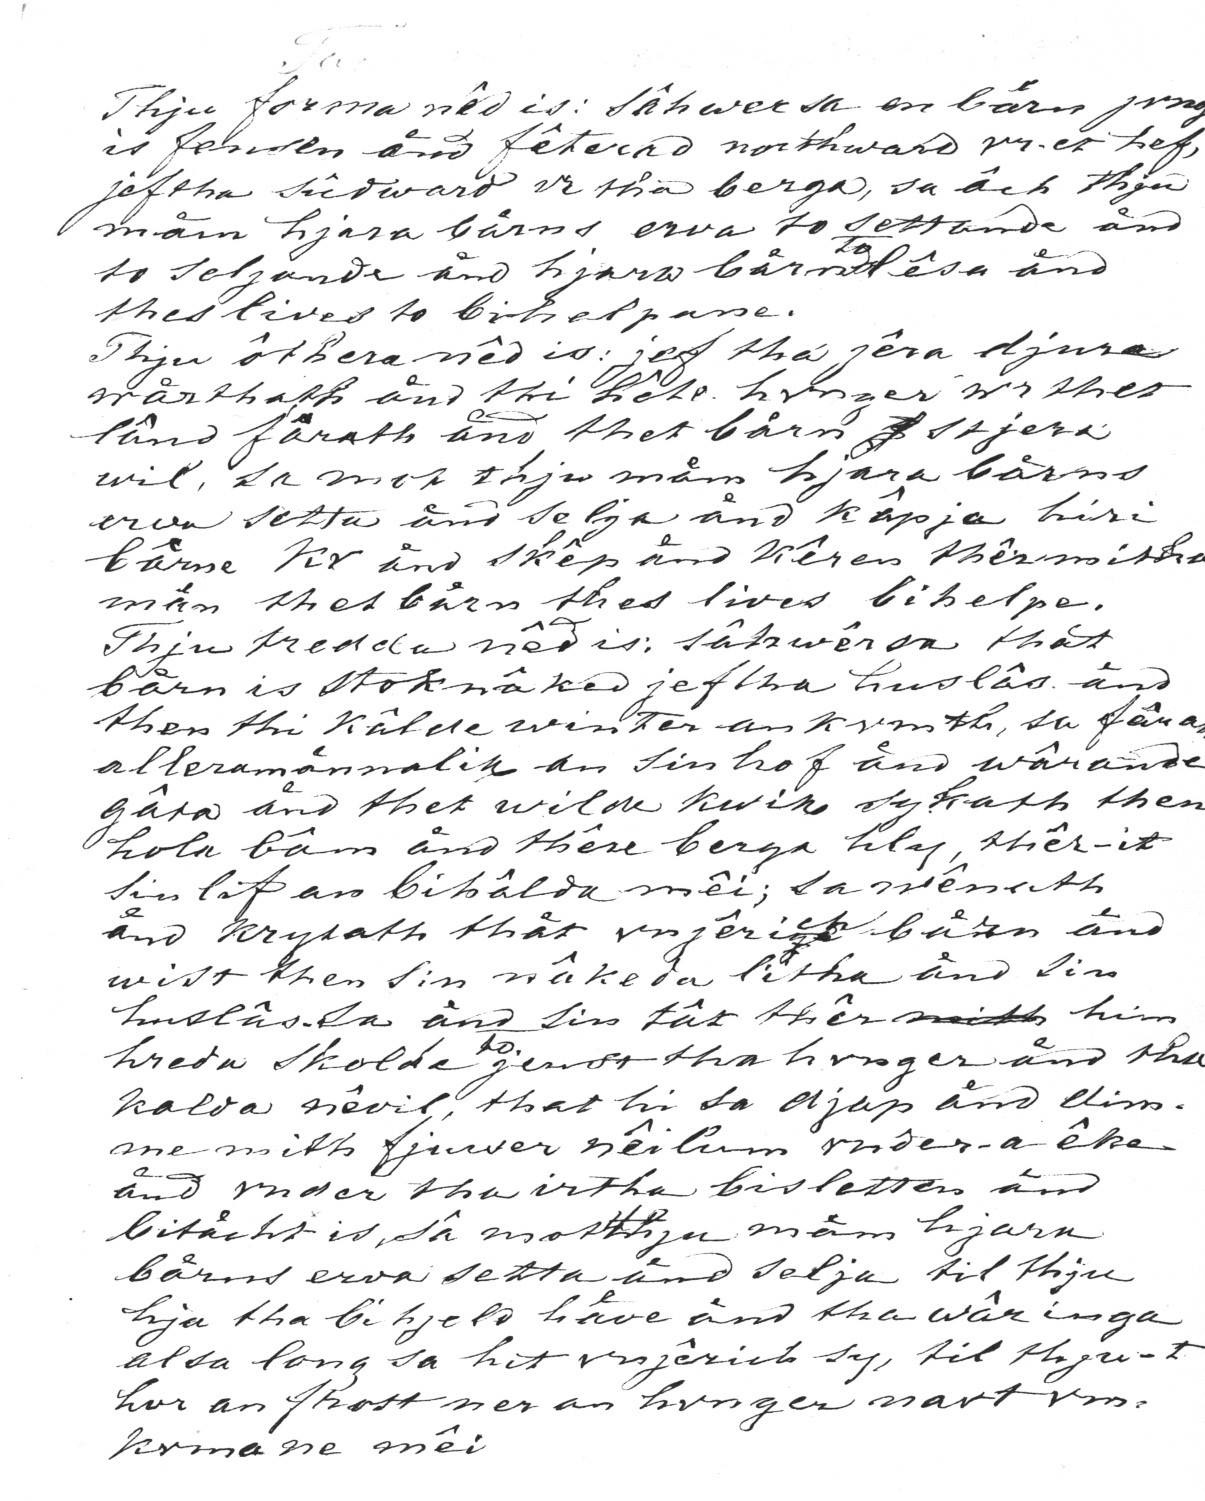 Thju forma nêd is: sâhwersa en bårn jvng
is fensen ånd fêterad northward vr-et hef,
jeftha sûdward vr tha berga, sa âch thju
måm hjara bårns erva to settande ånd
to seljande ånd hjara bårn to lêsa ånd
thes lives to bihelpane.
Thju ôthera nêd is: jef tha jêra djura
wårthath ånd thi hête hvnger wr thet
lând fârath ånd thet bårn stjera
wil, sa mot thju måm hjara bårns
erva setta ånd selja ånd kâpja hiri
bårne kv ånd skêp ånd kêren thêr mitha
mån thet bårn thes lives bihelpe.
Thju tredda nêd is: sâhwêrsa thåt
bårn is stoknâked jeftha huslâs ånd
then thi kålde winter ankvmth, sa fârath
alleramånnalik an sin hof ånd wârande
gâta ånd thet wilde kwik sykath then
hola bâm ånd thêre berga hly, thêr-it
sin lif an bihâlda mêi; sa wênath
ånd krytath thåt vnjêrich bårn ånd
wist then sin nâkeda litha ånd sin
huslâs-sa ånd sin tåt thêr him
hreda skolde to jenst tha hvnger ånd tha
kalda nêvil, that hi sa djap ånd dim-
me mith fjuwer nêilum vnder-a êke
ånd vnder tha irtha bisletten ånd
bitåcht is, sâ mot thju måm hjara
bårns erva setta ånd selja til thju
hju tha bihjeld håve ånd tha wâringa
alsa long sa hit vnjêrich sy, til thju-t
hor an frost ner an hvnger navt vm-
kvma ne mêi